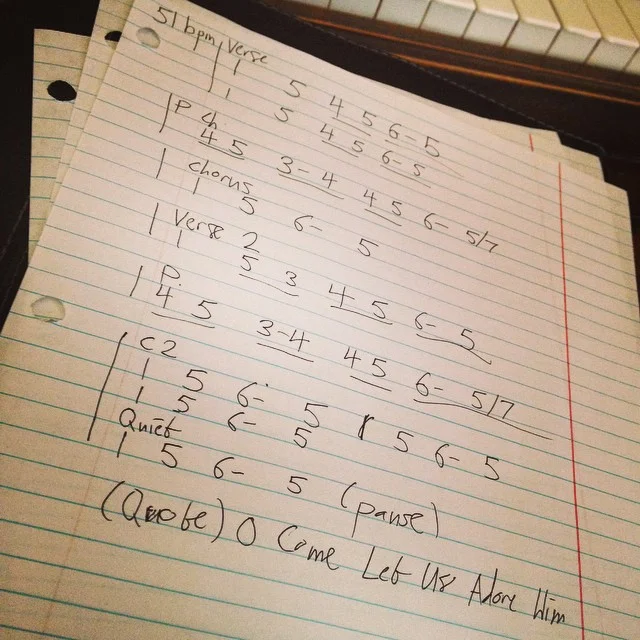 51 bpm Verse
1 5 4 5 6- 5
1 5 4 5 6- 5
P ch
4 5 3-4 4 5 6- 5/7
chorus
1 5 6- 5
Verse 2
1 5 3 4-5 6- 5
P.
4 5 3-4 4 5 6- 5/7
C2
1 5 6- 5 1 5 6- 5
1 5 6- 5
Quiet
1 5 6- 5 (pause)
(Quote) O Come Let Us Adore Him